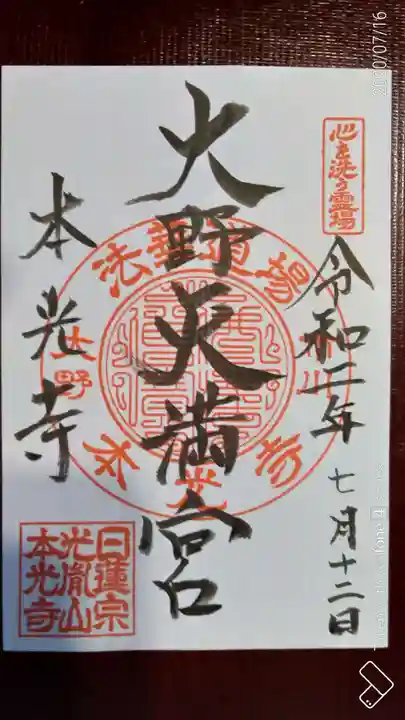 2020/07/16
心を洗う霊場
令和二年 七月十二日
大野天満宮
本光寺
法華道場
市川
大野
本光寺
日蓮宗
光胤山
本光寺